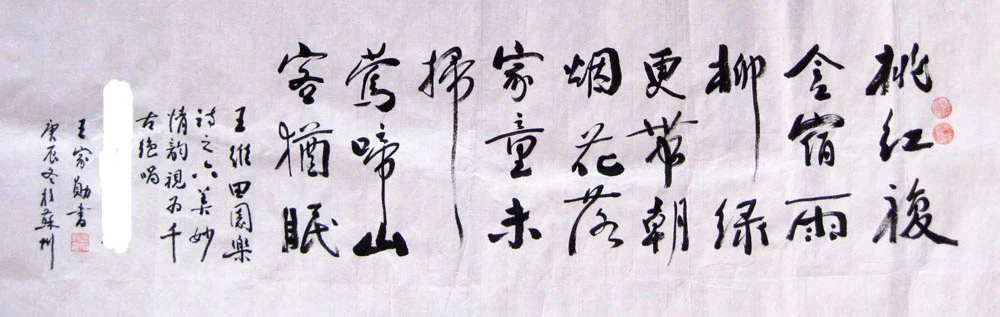 桃红複
含宿雨
柳绿
更带朝
烟花落
家童未
掃
莺啼山
客猶眠
王维田園樂
诗之六美妙
情韵視为千
古绝唱
王家勋書
庚辰冬於蘇州